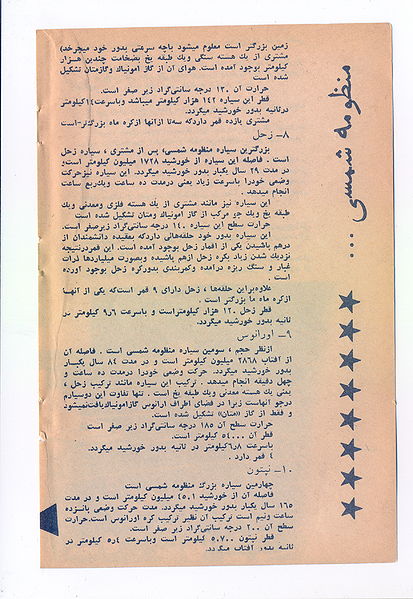 منظومه شمسی ...
زمین بزرگتر است معلوم میشود باچه سرعتی بدور خود میچرخد)
مشتری از یك هسته سنگی ویك طبقه یخ بضخامت چندین هزار
کیلومتر بوجود آمده است. هوای آن از گاز آمونیاك وگازمتان تشکیل
شده است
حرارت آن ۱۳۰ درجه سانتی‌گراد زیر صفر است.
قطر این سیاره ۱۴۲ هزار کیلومتر میباشد وباسرعت۱۳کیلومتر
درثانیه بدور خورشید میگردد.
مشتری یازده قمر داردکه سه‌تا ازآنها ازکره ماه بزرگ‌تراست
۸- زحل
بزرگترین سیاره منظومه شمسی، پس از مشتری ، سیاره زحل
است . فاصله این سیاره از خورشید ۱۷۲۸ میلیون کیلومتر است،
در مدت ۲۹ سال یکبار بدور خورشید میگردد. این سیاره نیزحرکت
وضعی خودرا باسرعت زیاد یعنی درمدت ده ساعت ویك‌ربع ساعت
انجام میدهد .
این سیاره نیز مانند مشتری از یك هسته فلزی ومعدنی ویك
طبقه یخ ویك جو مرکب از گاز آمونیاك ومتان تشکیل شده است
حرارت سطح این سیاره ۱۴۰ درجه سانتی‌گراد زیرصفر است.
این سیاره بدور خود حلقه‌هائی داردکه بعقیده دانشمندان از
درهم پاشیدن یکی از اقمار زحل بوجود آمده است. این قمردرنتیجه
نزدیك شدن زیاد بکره زحل ازهم پاشیده وبصورت میلیاردها ذرات
غبار و سنگ ریزه درآمده وکمربندی بدورکره زحل بوجود آورده
است .
علاوه‌براین حلقه‌ها ، زحل دارای ۹ قمر است‌که یکی از آنها
ازکره ماه ما بزرگتر است .
قطر زحل ۱۲۰ هزار کیلومتراست و باسرعت ۹ر۶ کیلومتر در
ثانیه بدور خورشید میگردد.
۹- اورانوس
ازنظر حجم ، سومین سیاره منظومه شمسی است . فاصله آن
از آفتاب ۲۸۷۸ میلیون کیلومتر است و در مدت ۸۴ سال یکبار
بدور خورشید میگردد. حرکت وضعی خودرا درمدت ده ساعت و
چهل دقیقه انجام میدهد . ترکیب این سیاره مانند ترکیب زحل ،
یعنی یك هسته معدنی ویك طبقه یخ است . تنها تفاوت این دوسیاره
درجو آنهاست زیرا در فضای اطراف اورانوس گازآمونیاك‌یافت‌نمیشود
و فقط از گاز «متان» تشکیل شده است.
حرارت سطح آن ۱۸۵ درجه سانتی‌گراد زیر صفر است
قطر آن ۵۴۰۰۰ کیلومتر است.
باسرعت ۶ر۸کیلومتر در ثانیه بدور خورشید میگردد.
۴ قمر دارد .
۱۰- نپتون
چهارمین سیاره بزرگ منظومه شمسی است
فاصله آن از خورشید ۴۵۰۱ میلیون کیلومتر است و در مدت
۱۶۵ سال یکبار بدور خورشید میگردد. مدت حرکت وضعی پانزده
ساعت ونیم است ترکیب آن نظیر ترکیب کره اورانوس است.حرارت
سطح آن ۲۰۰ درجه سانتی‌گراد زیر صفر است.
قطر نپتون ۵۰۷۰۰ کیلومتر است وباسرعت ۵ر۴ کیلومتر در
ثانیه بدور آفتاب میگردد.